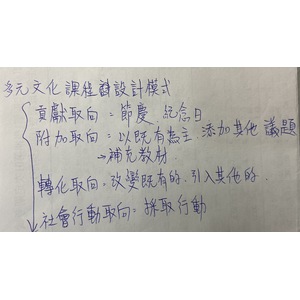 多元文化課程設計模式
貢獻取向：節慶、紀念日
附加取向：以既有為主 添加其他 議題
→補充教材
轉化取向：改變既有的、引入其他的.
社會行動取向：採取行動